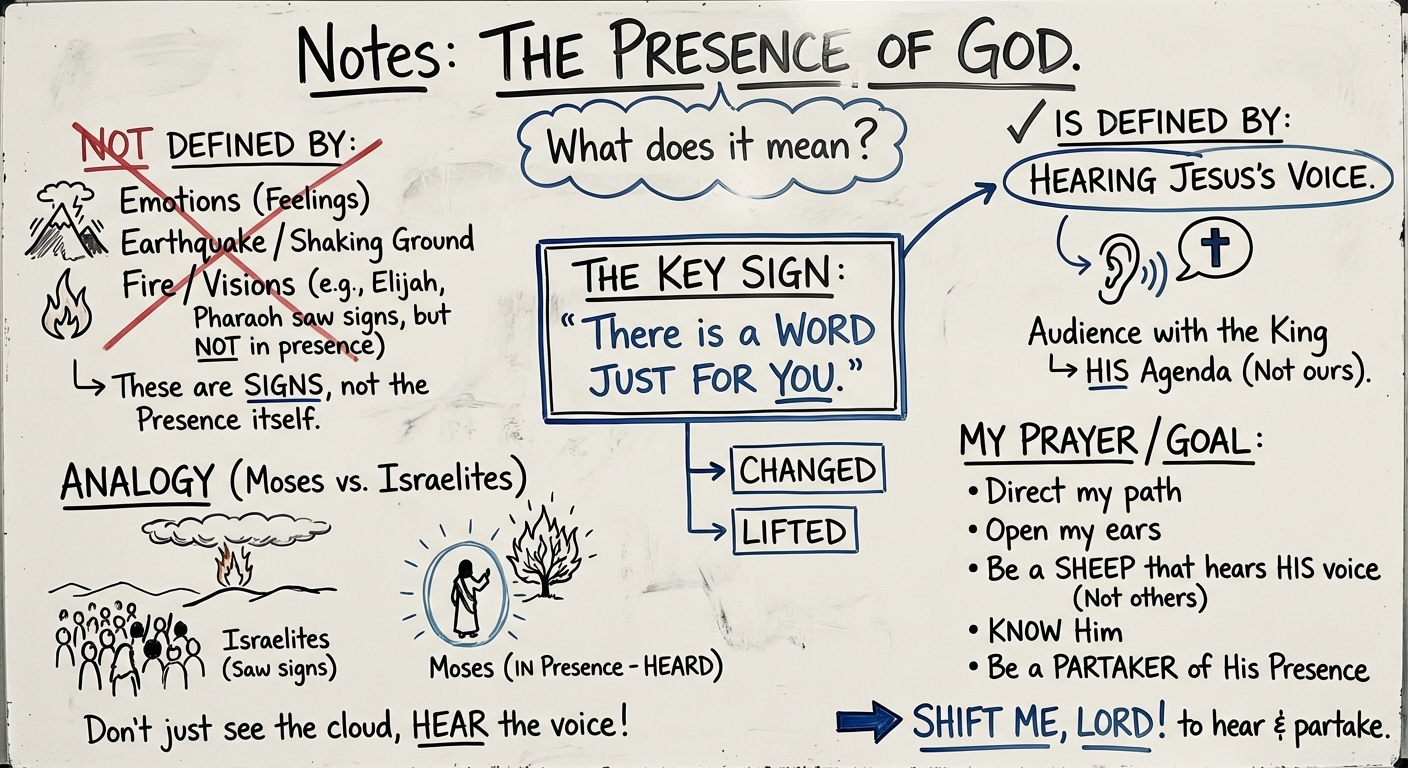 Notes: THE PRESENCE OF GOD.
What does it mean?
NOT DEFINED BY:
Emotions (Feelings)
Earthquake / Shaking Ground
Fire / Visions (e.g., Elijah,
Pharaoh saw signs, but
NOT in presence)
These are SIGNS, not the
Presence itself.
ANALOGY (Moses vs. Israelites)
Israelites
(Saw signs)
Moses (IN Presence - HEARD)
Don't just see the cloud, HEAR the voice!
THE KEY SIGN:
"There is a WORD
JUST FOR YOU."
CHANGED
LIFTED
✓ IS DEFINED BY:
HEARING JESUS'S VOICE.
Audience with the King
HIS Agenda (Not ours).
MY PRAYER / GOAL:
• Direct my path
• Open my ears
• Be a SHEEP that hears HIS voice
(Not others)
• KNOW Him
• Be a PARTAKER of His Presence
SHIFT ME, LORD! to hear & partake.